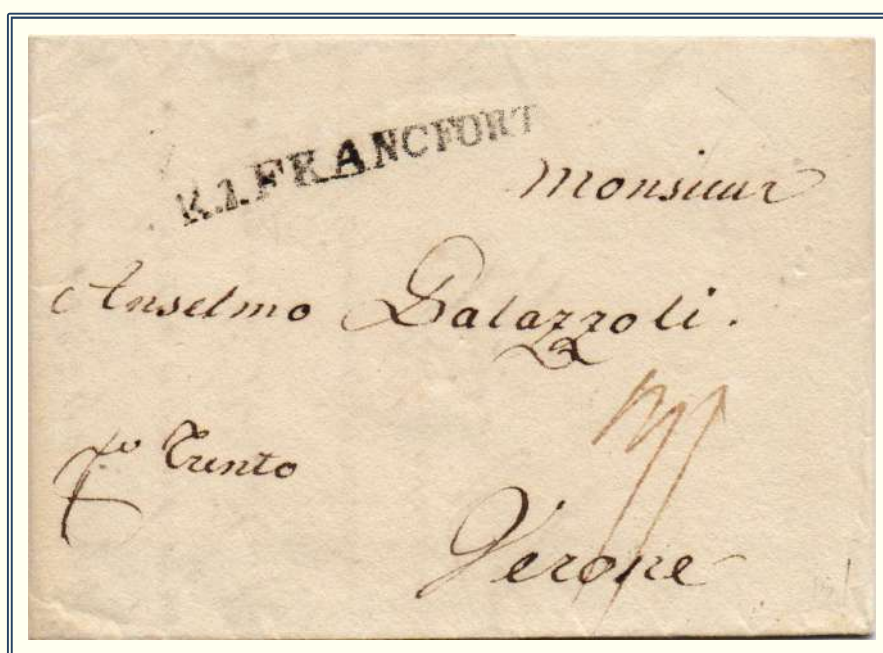 R.1.FRANCFORT
Monsieur
Anselmo Balazzoli.
fco Trento
Verone